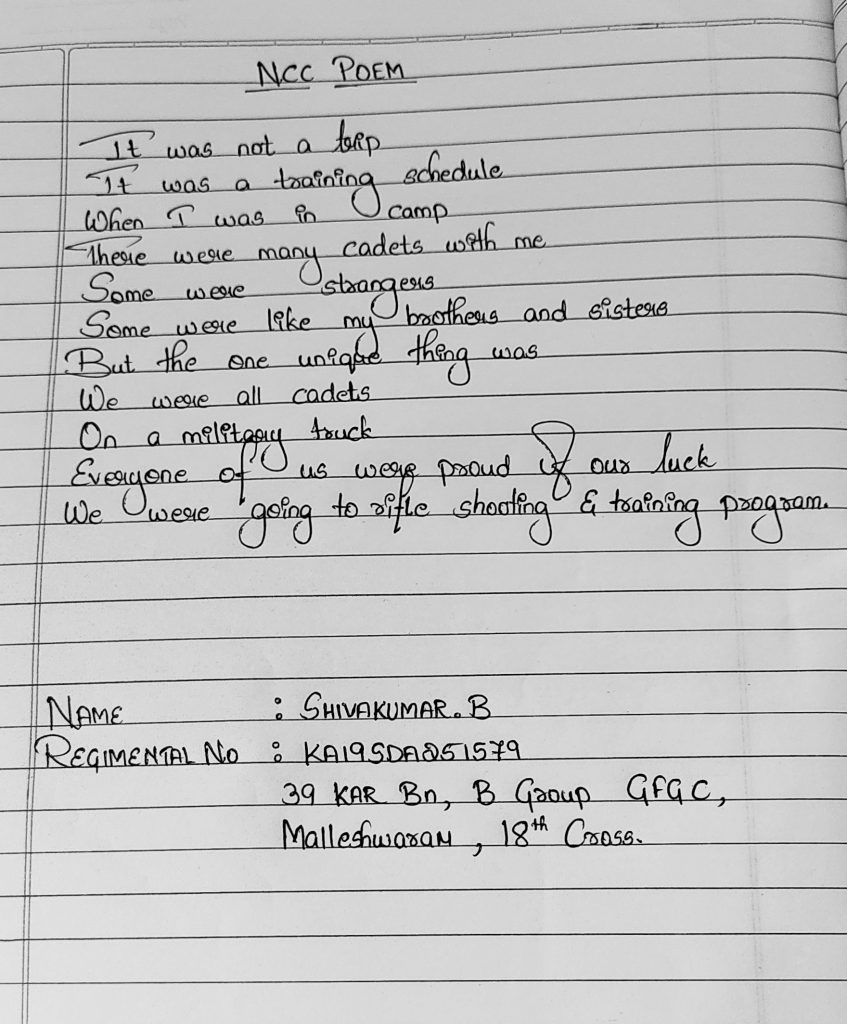 NCC POEM
It was not a trip
It was a training schedule
When I was in camp
There were many cadets with me
Some were strangers
Some were like my brothers and sisters
But the one unique thing was
We were all cadets
On a military truck
Everyone of us were proud of our luck
We were going to rifle shooting & training program.
NAME : SHIVAKUMAR. B
REGIMENTAL NO :
39 KAR Bn, B Group GFGC,
Malleshwaram, 18th Cross.